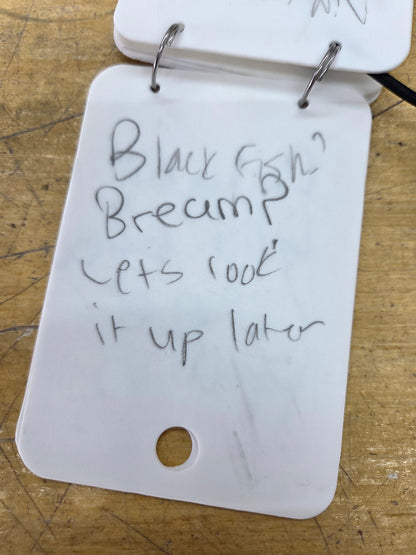 Black Fish?
Bream?
Lets look
it up later